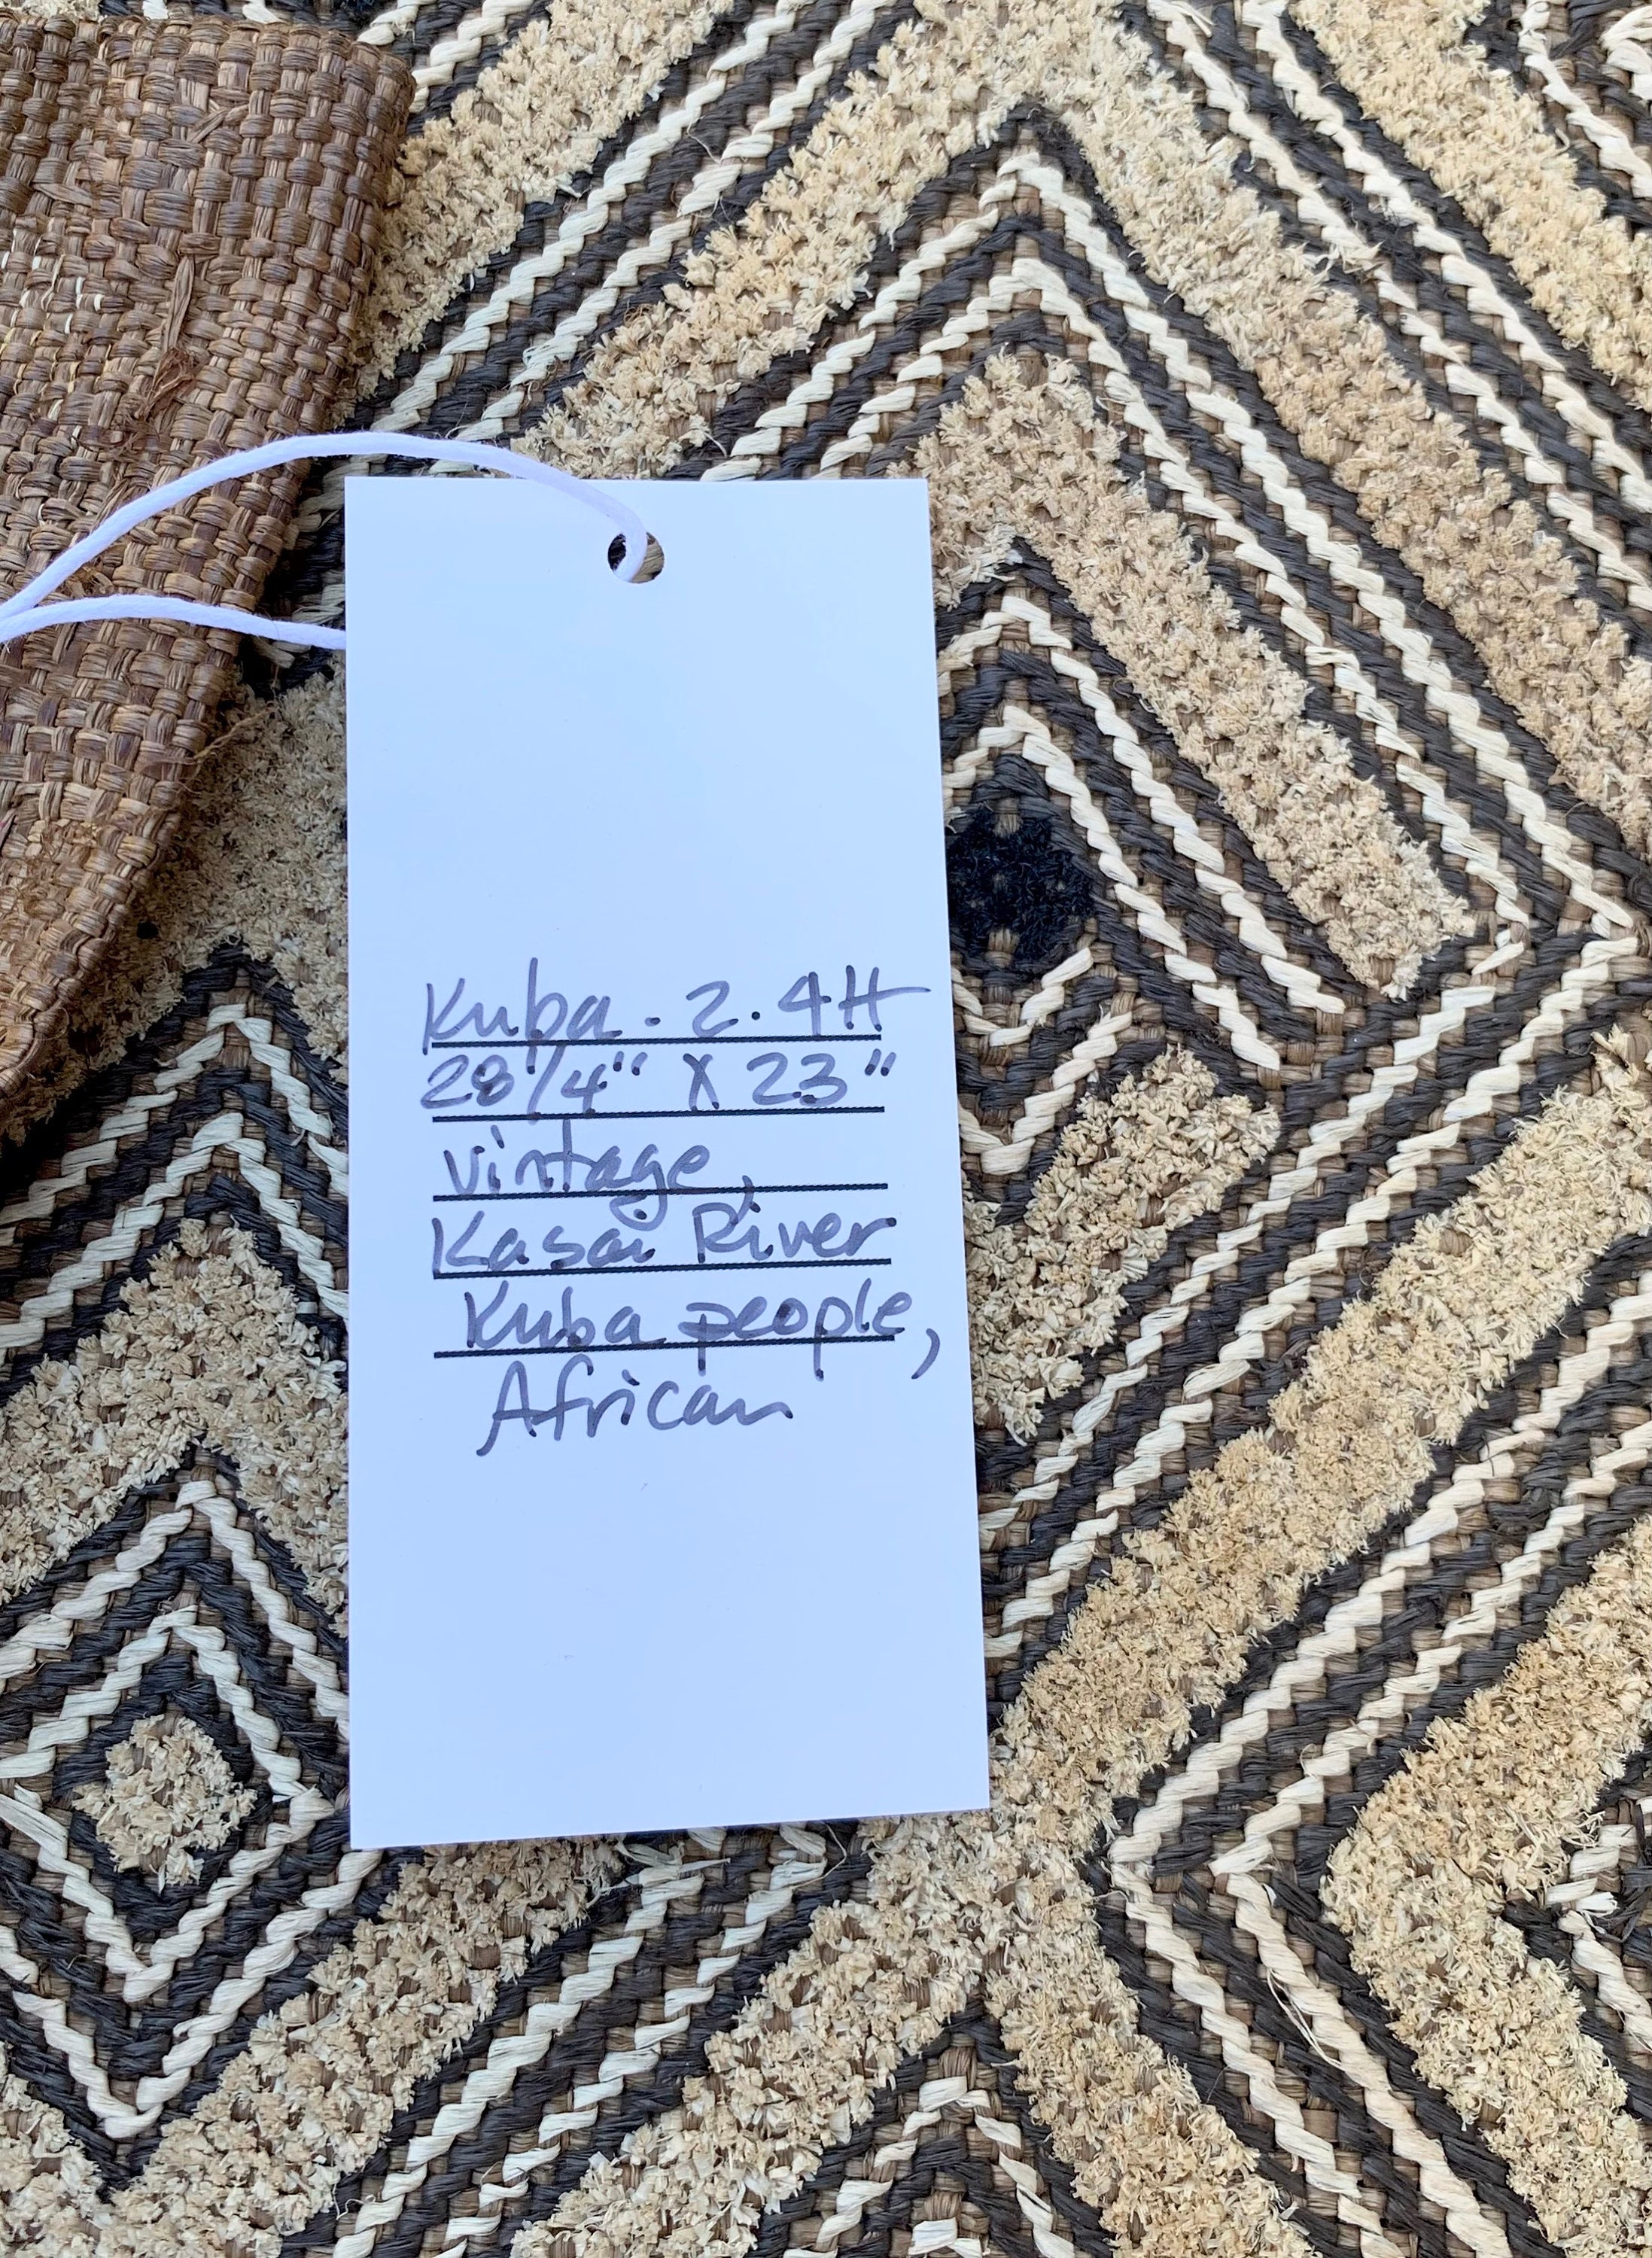 Kuba. 2.4H
28 1/4" X 23"
vintage,
Kasai River
Kuba people,
African